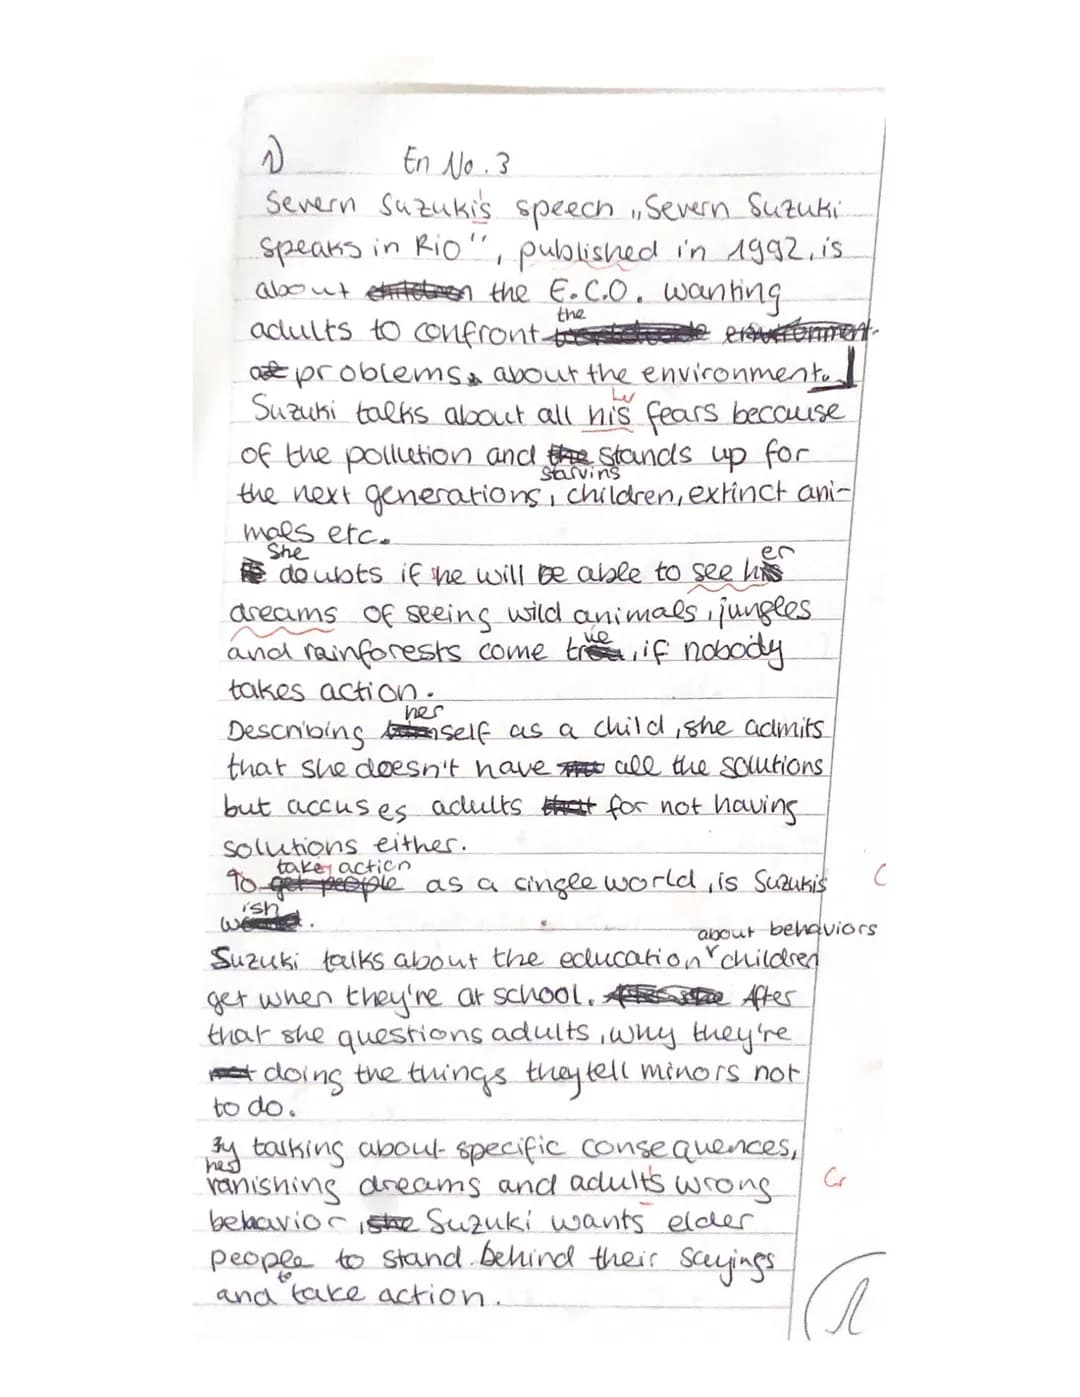 1) En No. 3
Severn Suzuki's speech „Severn Suzuki
speaks in Rio", published in 1992, is
about children the E.C.O. wanting
the
adults to confront environment-
problems about the environment.
her
Suzuki talks about all his fears because
of the pollution and the stands up for
starving
the next generations, children, extinct ani-
mals etc.
She er
doubts if he will be able to see his
dreams of seeing wild animals, jungles
ue
and rainforests come tr, if nobody
takes action.
her
Describing himself as a child, she admits
that she doesn't have not all the solutions
but accuses adults that for not having
solutions either.
take action
To get people as a single world, is Suzukis C
ish
w.
about behaviors
Suzuki talks about the education children
get when they're at school. After
that she questions adults, why they're
not doing the things they tell minors not
to do.
By talking about specific consequences,
her
vanishing dreams and adult's wrong Gr
behavior, she Suzuki wants elder
people to stand behind their sayings
to
and take action.